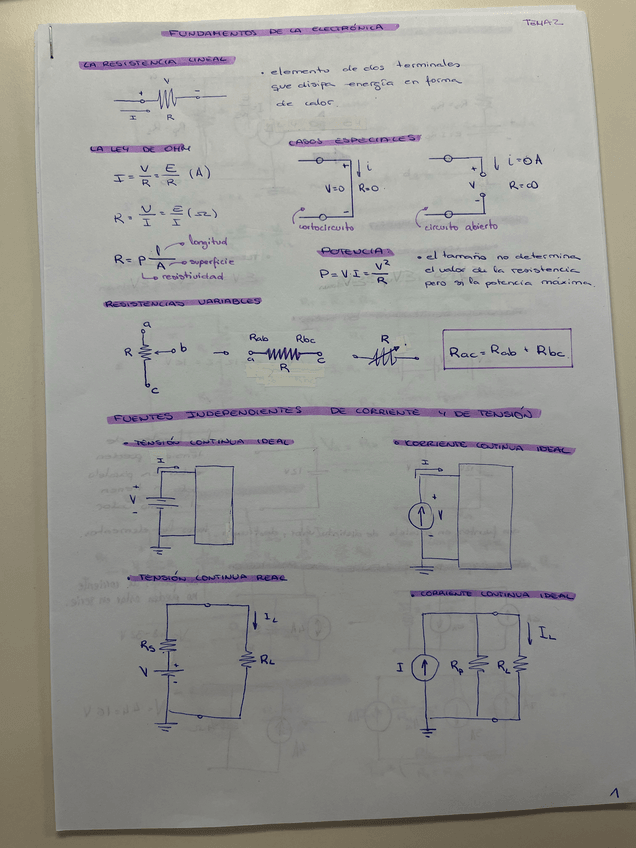 FUNDAMENTOS DE LA ELECTRÓNICA
TEMA 2
LA RESISTENCIA LINEAL
• elemento de dos terminales
que disipa energía en forma
de calor.
+ V -
I R
LA LEY DE OHM
I = V/R = E/R (A)
R = V/I = E/I (Ω)
R = ρ l/A
longitud
superficie
resistividad
CASOS ESPECIALES
+ i
V=0 R=0
-
cortocircuito
i=0 A
+
V R=∞
-
circuito abierto
POTENCIA:
P = V·I = V²/R
• el tamaño no determina
el valor de la resistencia
pero si la potencia máxima.
RESISTENCIAS VARIABLES
a
R b
c
Rab Rbc
a c
R
R
Rac = Rab + Rbc
FUENTES INDEPENDIENTES DE CORRIENTE Y DE TENSIÓN
• TENSIÓN CONTINUA IDEAL
I
+
V
-
• CORRIENTE CONTINUA IDEAL
I
+
V
-
• TENSIÓN CONTINUA REAL
IL
RS
RL
V +
-
• CORRIENTE CONTINUA IDEAL
IL
I Rp RL
1